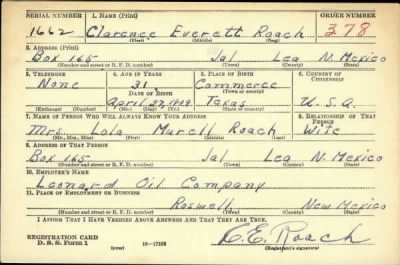 SERIAL NUMBER 1. NAME (Print) ORDER NUMBER
1662 Clarence Everett Roach 378
(First) (Middle) (Last)
2. ADDRESS (Print)
Box 165 Jal Lea N. Mexico
(Number and street or R. F. D. number) (Town) (County) (State)
3. TELEPHONE 4. AGE IN YEARS 5. PLACE OF BIRTH 6. COUNTRY OF CITIZENSHIP
None 31 Commerce
DATE OF BIRTH
April 27, 1909 Texas U.S.A.
(Exchange) (Number) (Mo.) (Day) (Yr.) (State or country)
7. NAME OF PERSON WHO WILL ALWAYS KNOW YOUR ADDRESS 8. RELATIONSHIP OF THAT PERSON
Mrs. Lola Murell Roach Wife
(Mr., Mrs., Miss) (First) (Middle) (Last)
9. ADDRESS OF THAT PERSON
Box 165 Jal Lea N. Mexico
(Number and street or R. F. D. number) (Town) (County) (State)
10. EMPLOYER'S NAME
Leonard Oil Company
11. PLACE OF EMPLOYMENT OR BUSINESS
Roswell New Mexico
(Number and street or R. F. D. number) (Town) (County) (State)
I AFFIRM THAT I HAVE VERIFIED ABOVE ANSWERS AND THAT THEY ARE TRUE.
REGISTRATION CARD
D. S. S. Form 1 (over) 16-17105 C.E. Roach
(Registrant's signature)